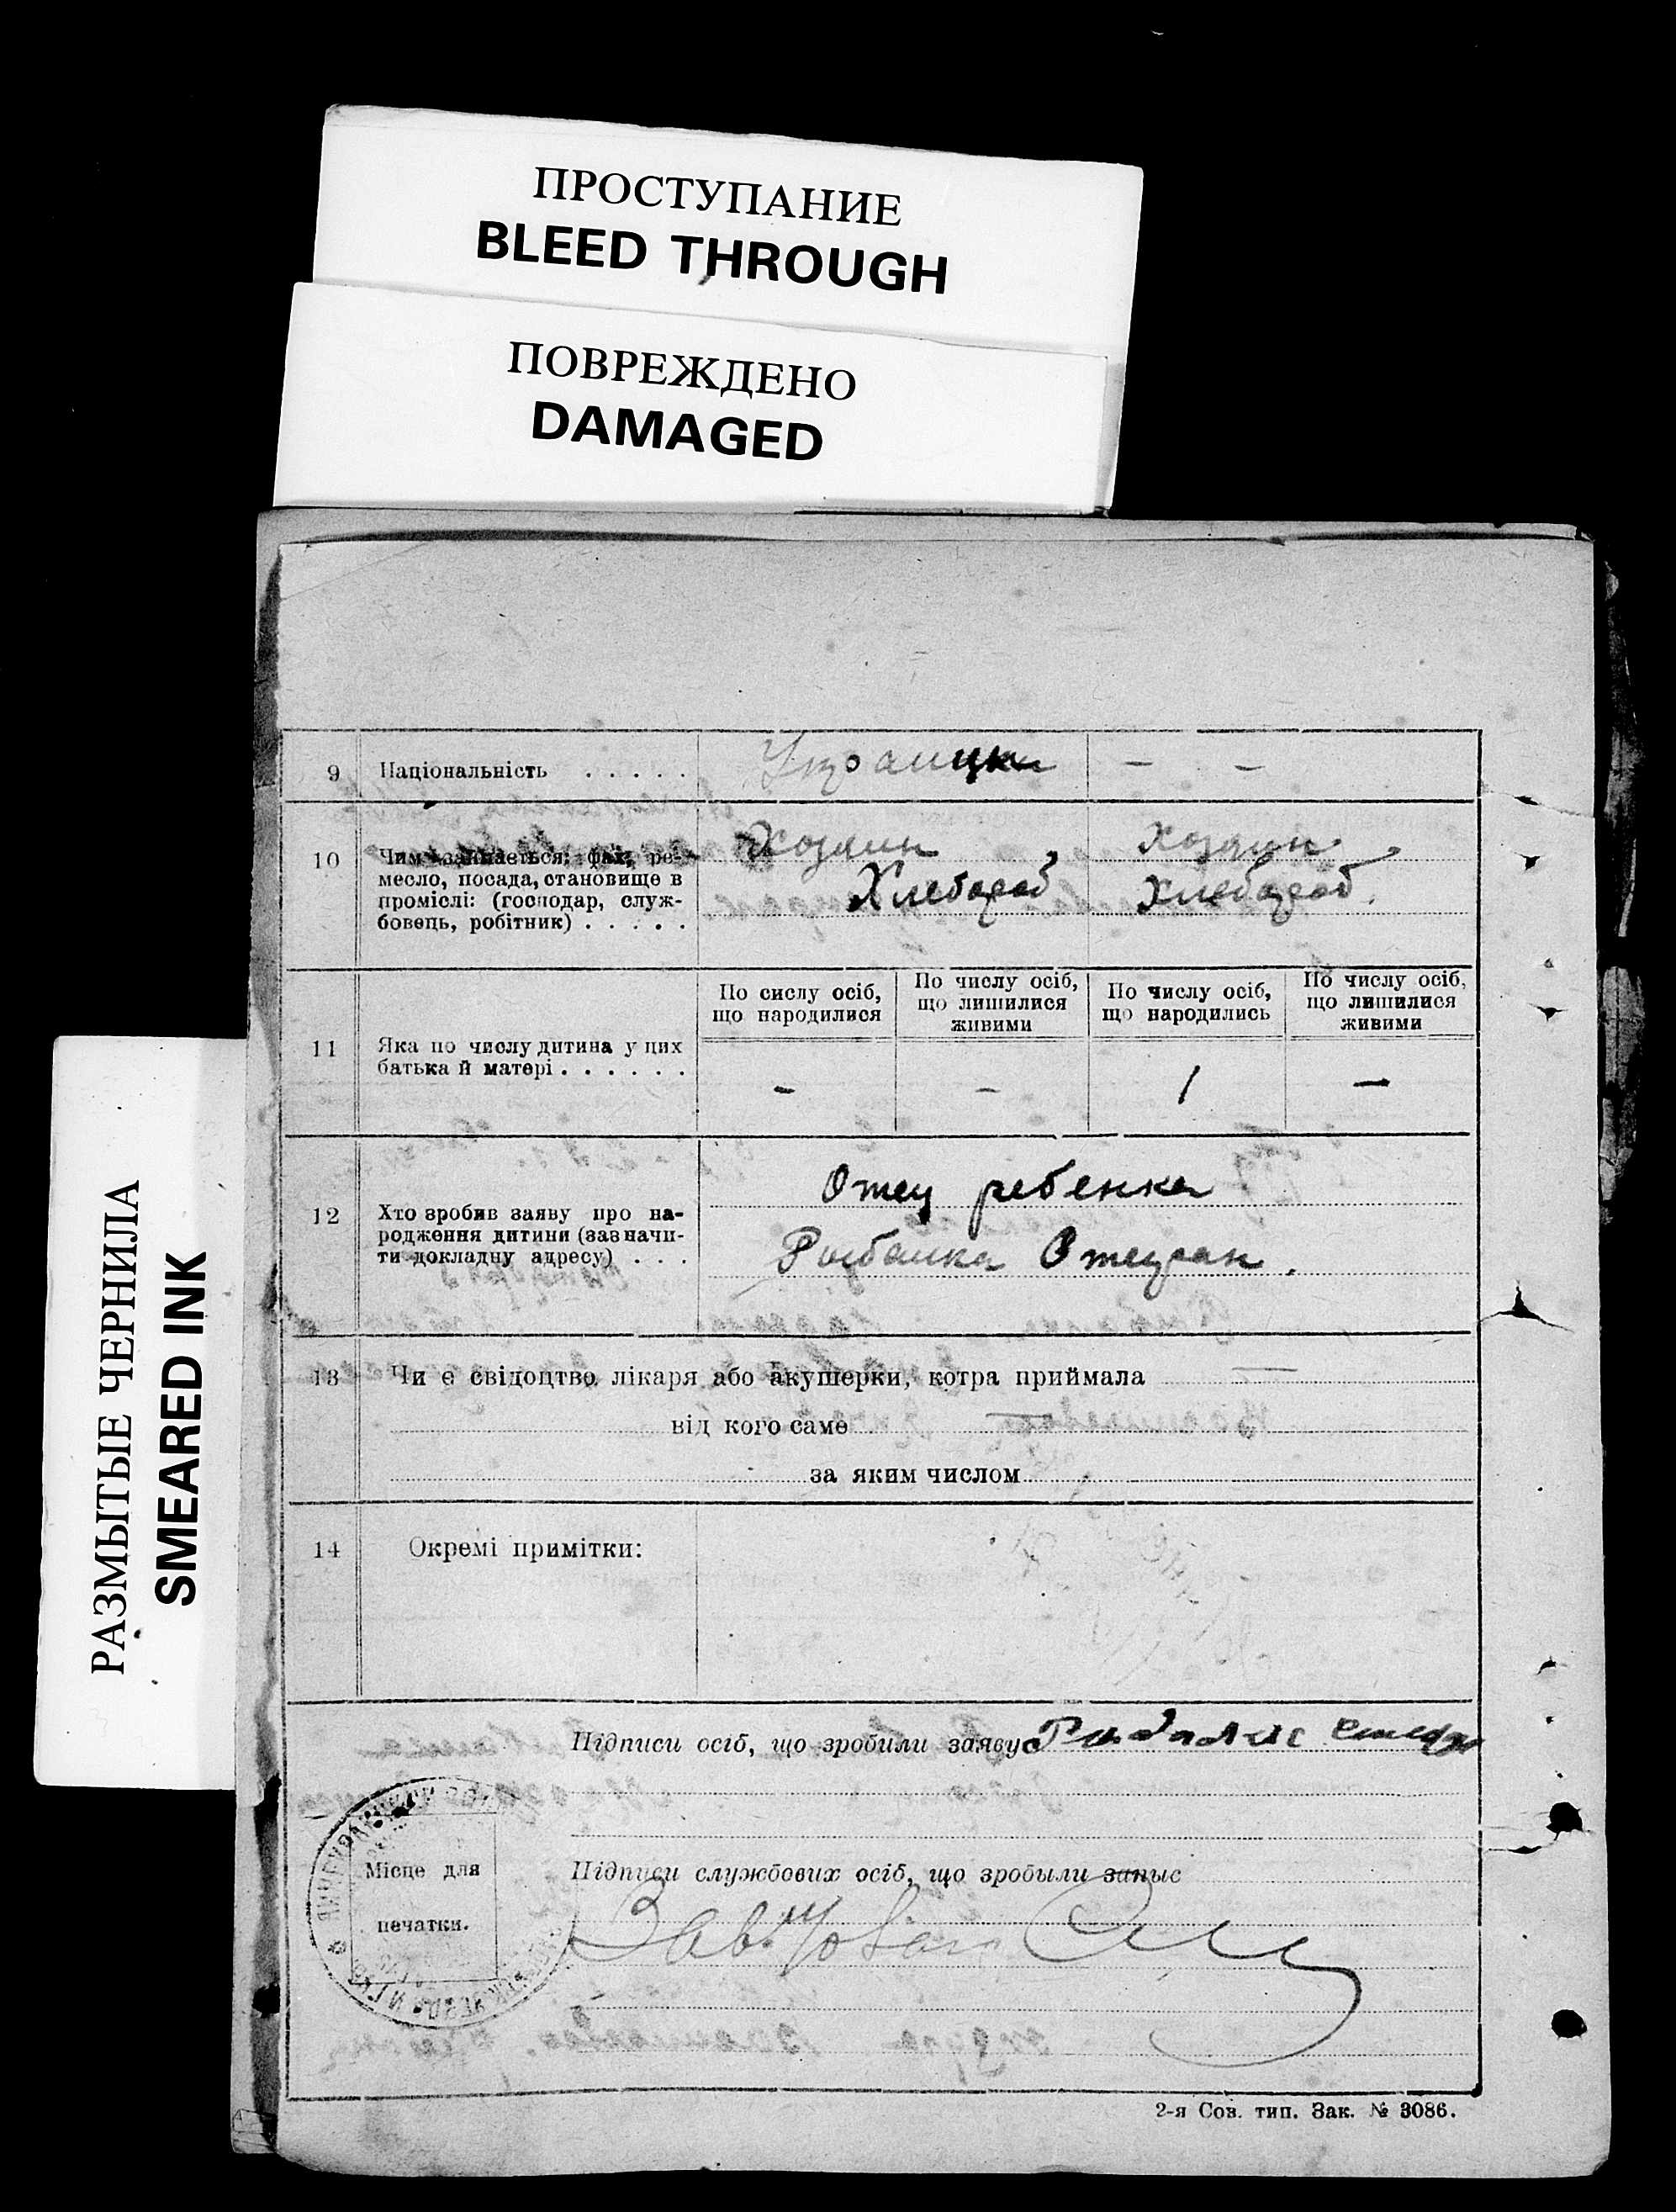 ПРОСТУПАНИЕ
BLEED THROUGH
ПОВРЕЖДЕНО
DAMAGED
РАЗМЫТЫЕ ЧЕРНИЛА
SMEARED INK
9 Національність . . . . . — —
10 Чим займається: фах, ре-
месло, посада, становище в
проміслі: (господар, служ-
бовець, робітник) . . . . .
Хозяин Хозяин
Хлебороб Хлебороб.
По сислу осіб,
що народилися
По числу осіб,
що лишилися
живими
По числу осіб,
що народились
По числу осіб,
що лишилися
живими
11 Яка по числу дитина у цих
батька й матері . . . . . .
— — 1 —
12 Хто зробив заяву про на-
родження дитини (зазначи-
ти докладну адресу) . . .
Отец ребенка
13 Чи є свідоцтво лікаря або акушерки, котра приймала —
від кого саме —
за яким числом
14 Окремі примітки:
Підписи осіб, що зробили заяву
Місце для
печатки.
Підписи службових осіб, що зробыли запыс
2-я Сов. тип. Зак. № 3086.